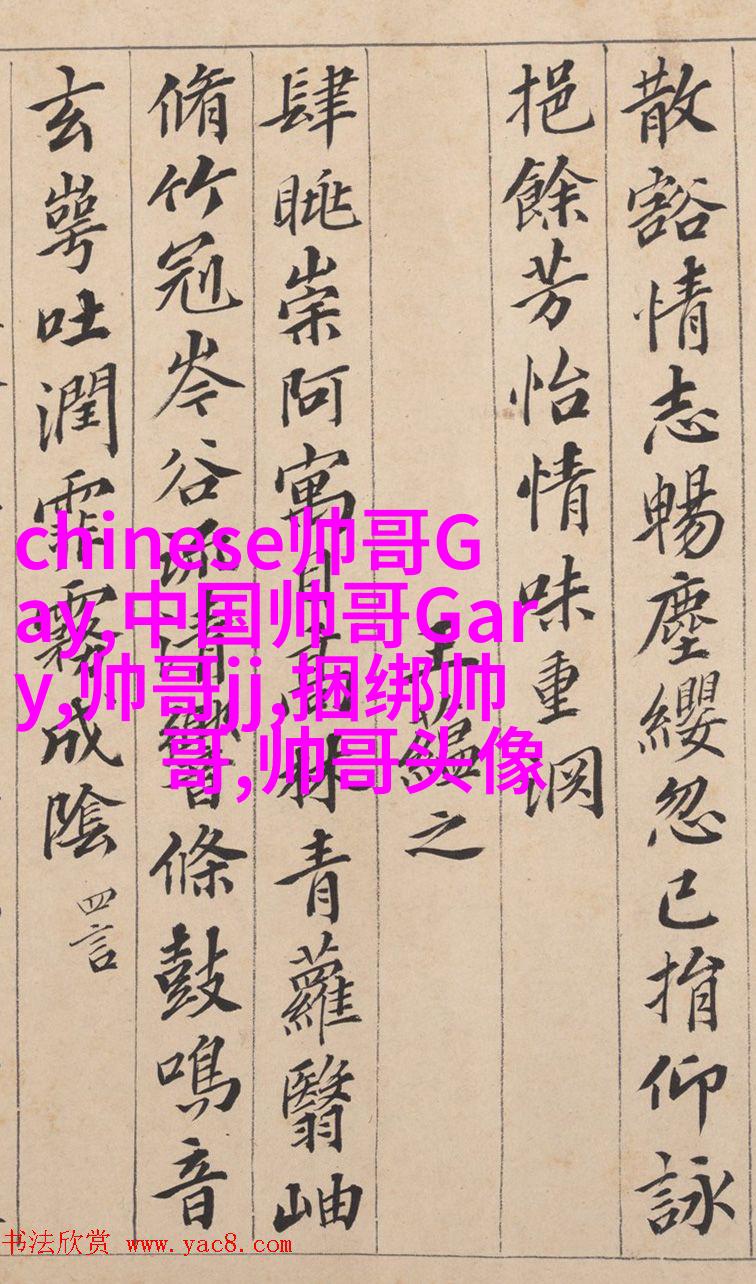 散豁情志暢塵纓忽已捐仰詠
挹餘芳怡情味重淵
王蘊之
肆眺崇阿寓目高林青蘿翳岫
脩竹冠岑谷流清響條鼓鳴音
玄崿吐潤霏霧成陰
四言
chinese帅哥G
ay,中国帅哥Gar
y,帅哥jj,捆绑帅
哥,帅哥头像
书法欣赏 www.yac8.com